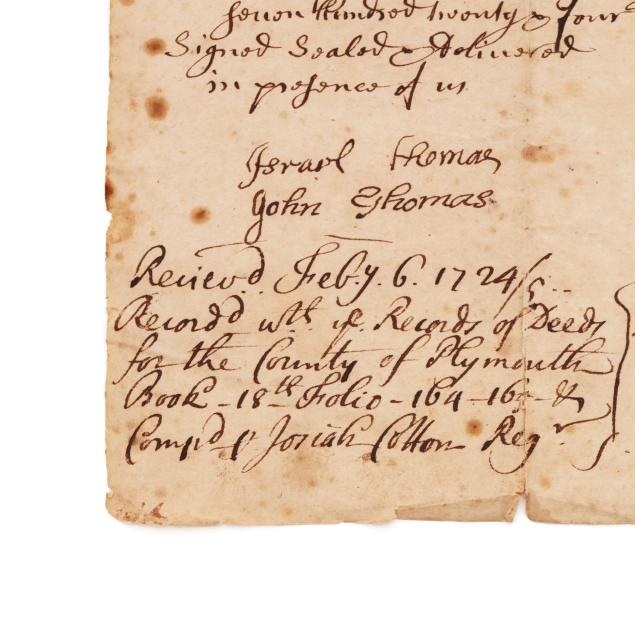 seven Hundred twenty & four
Signed Sealed & Delivered
in presence of us
Israel Thomas
John Thomas
Reciev'd Feb.y. 6. 1724/5..
Record'd wth. ye. Records of Deeds
for the County of Plymouth
Book - 18th Folio - 164 - 165 - &
Comp'd p Josiah Cotton Regr